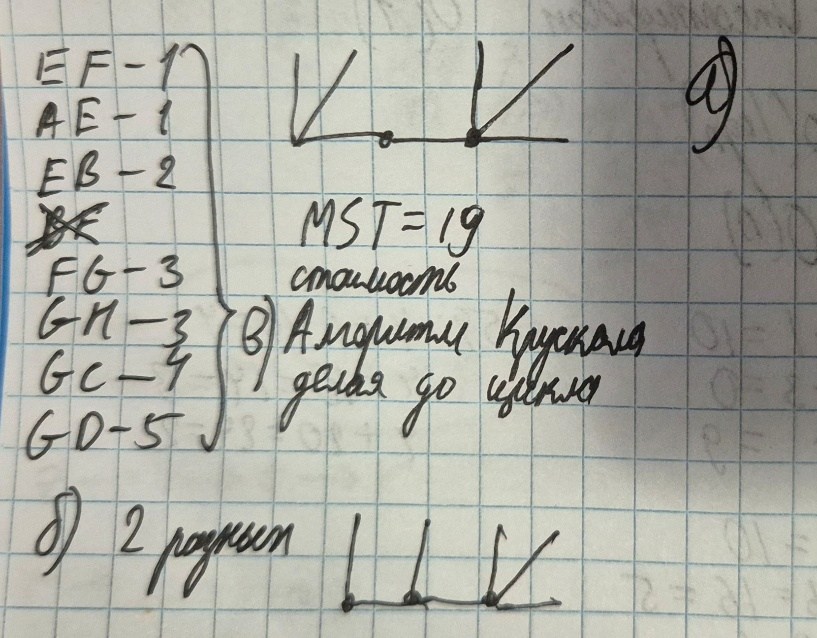 EF - 1
AE - 1
EB - 2
FG - 3
GH - 3
GC - 4
GD - 5
а)
MST = 19
стоимость
в) Алгоритм Крускала
делая до цикла
б) 2 разных